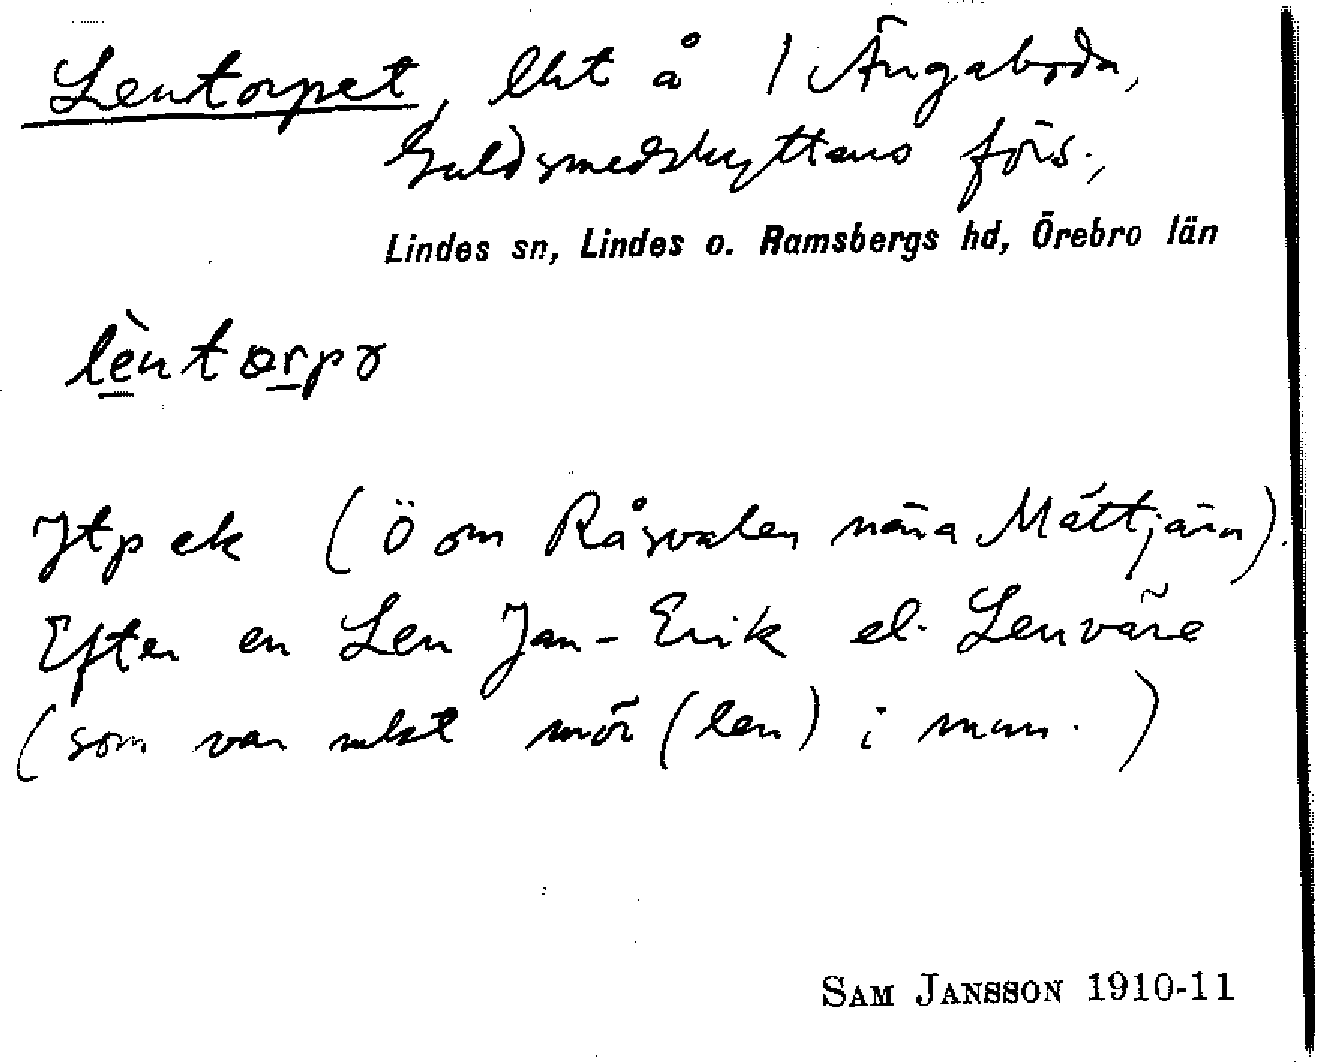 Lentorpet, lht å 1 Ängaboda,
Guldsmedshyttans förs.,
Lindes sn, Lindes o. Ramsbergs hd, Örebro län
lèntorpə
Jtp ek (Ö om Råsvalen nära Måttjärn).
Efter en Len Jan-Erik el. Lenväre
(som var mkt mör (len) i mun.)
SAM JANSSON 1910-11